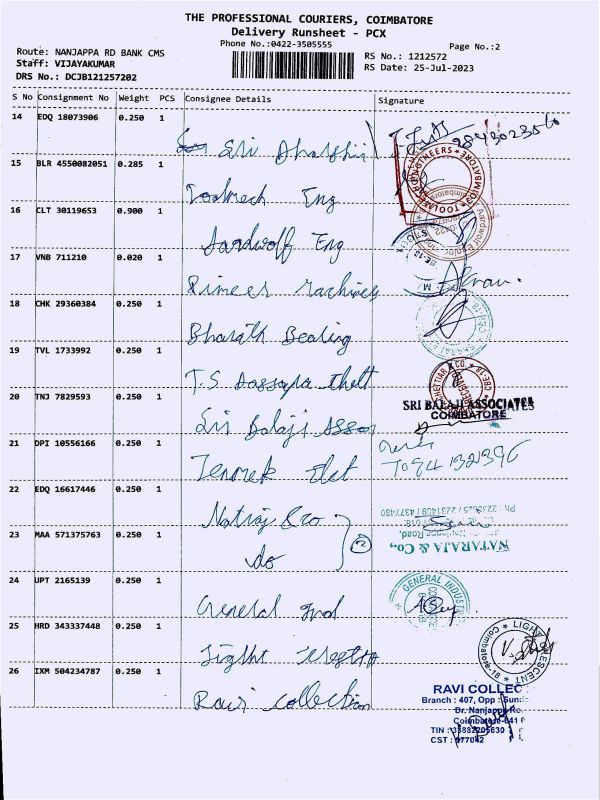 THE PROFESSIONAL COURIERS, COIMBATORE
Delivery Runsheet - PCX
Phone No.:0422-3505555
Page No.:2
Route: NANJAPPA RD BANK CMS
Staff: VIJAYAKUMAR
DRS No.: DCJB121257202
RS No.: 1212572
RS Date: 25-Jul-2023
S No Consignment No Weight PCS Consignee Details Signature
14 EDQ 18073906 0.250 1
Sri Dharshini
15 BLR 4550082051 0.285 1
Toolmech Eng
16 CLT 30119653 0.900 1
Aardwolf Eng
17 VNB 711210 0.020 1
Pimees Machines
18 CHK 29360384 0.250 1
Bharath Bearing
19 TVL 1733992 0.250 1
T.S
20 TNJ 7829593 0.250 1
Sri Balaji Assoc
SRI BALAJI ASSOCIATES
COIMBATORE
21 DPI 10556166 0.250 1
Elet
22 EDQ 16617446 0.250 1
Natraj & co
23 MAA 571375763 0.250 1
do
2
NATARAJA & Co.,
24 UPT 2165139 0.250 1
General Ind
GENERAL INDUSTRIES
25 HRD 343337448 0.250 1
Light
LIGHT
Coimbatore-18
26 IXM 504234787 0.250 1
Ravi Collection
RAVI COLLEC
Branch : 407, Opp :
Dr. Nanjappa
Coimbatore-641
TIN :
CST : 977042